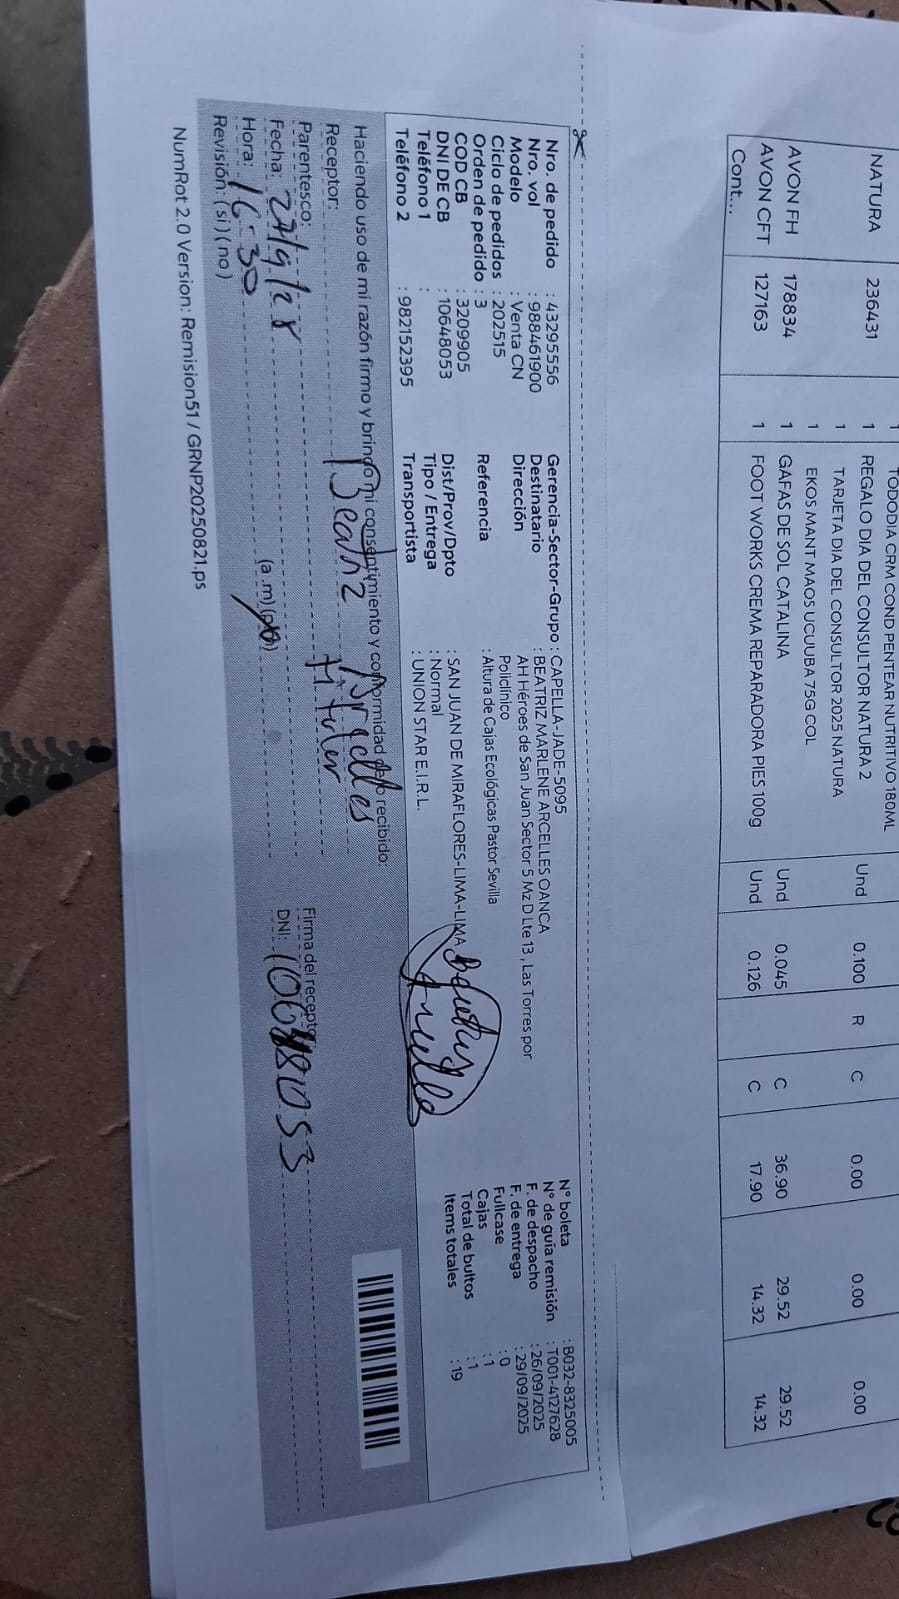 TODODIA CRM COND PENTEAR NUTRITIVO 180ML
NATURA 236431 1 REGALO DIA DEL CONSULTOR NATURA 2 Und 0.100 R C 0.00 0.00 0.00
1 TARJETA DIA DEL CONSULTOR 2025 NATURA
1 EKOS MANT MAOS UCUUBA 75G COL
AVON FH 178834 1 GAFAS DE SOL CATALINA Und 0.045 C 36.90 29.52 29.52
AVON CFT 127163 1 FOOT WORKS CREMA REPARADORA PIES 100g Und 0.126 C 17.90 14.32 14.32
Cont...
Nro. de pedido : 43295556
Nro. vol : 988461900
Modelo : Venta CN
Ciclo de pedidos : 202515
Orden de pedido : 3
COD CB : 3209905
DNI DE CB : 10648053
Teléfono 1 :
Teléfono 2 : 982152395
Gerencia-Sector-Grupo : CAPELLA-JADE-5095
Destinatario : BEATRIZ MARLENE ARCELLES OANCA
Dirección AH Héroes de San Juan Sector 5 Mz D Lte 13 , Las Torres por
Policlinico
Referencia : Altura de Cajas Ecológicas Pastor Sevilla
Dist/Prov/Dpto : SAN JUAN DE MIRAFLORES-LIMA-LIMA
Tipo / Entrega : Normal
Transportista : UNION STAR E.I.R.L.
N° boleta : B032-8325005
N° de guía remisión : T001-4127628
F. de despacho : 26/09/2025
F. de entrega : 29/09/2025
Fullcase : 0
Cajas : 1
Total de bultos : 1
Items totales : 19
Haciendo uso de mi razón firmo y brindo mi consentimiento y conformidad de lo recibido:
Receptor:
Parentesco: Titular
Fecha:
Hora: 16:30 (a.m)(p.m)
Revisión: (si) (no)
Firma del receptor
DNI:
NumRot 2.0 Version: Remision51 / GRNP20250821.ps